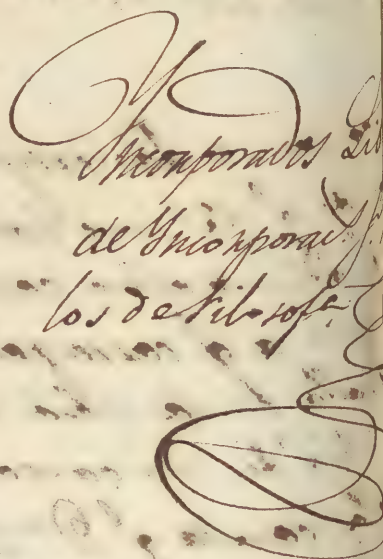 Yncorporados Lib
de Yncorporac
los de Filosofa